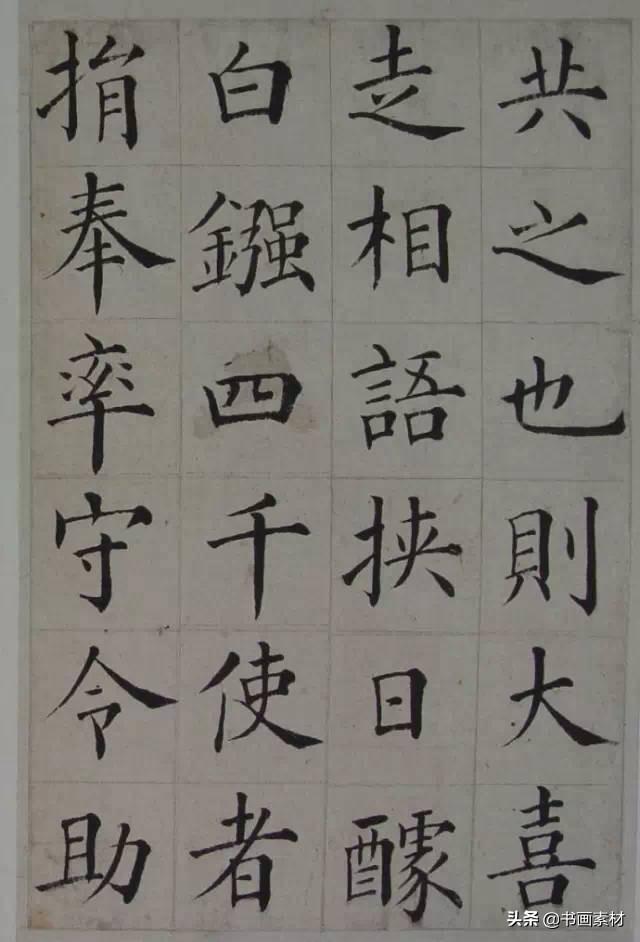 共之也則大喜
走相語挾日醵
白鏹四千使者
捐奉率守令助
头条 @书画素材